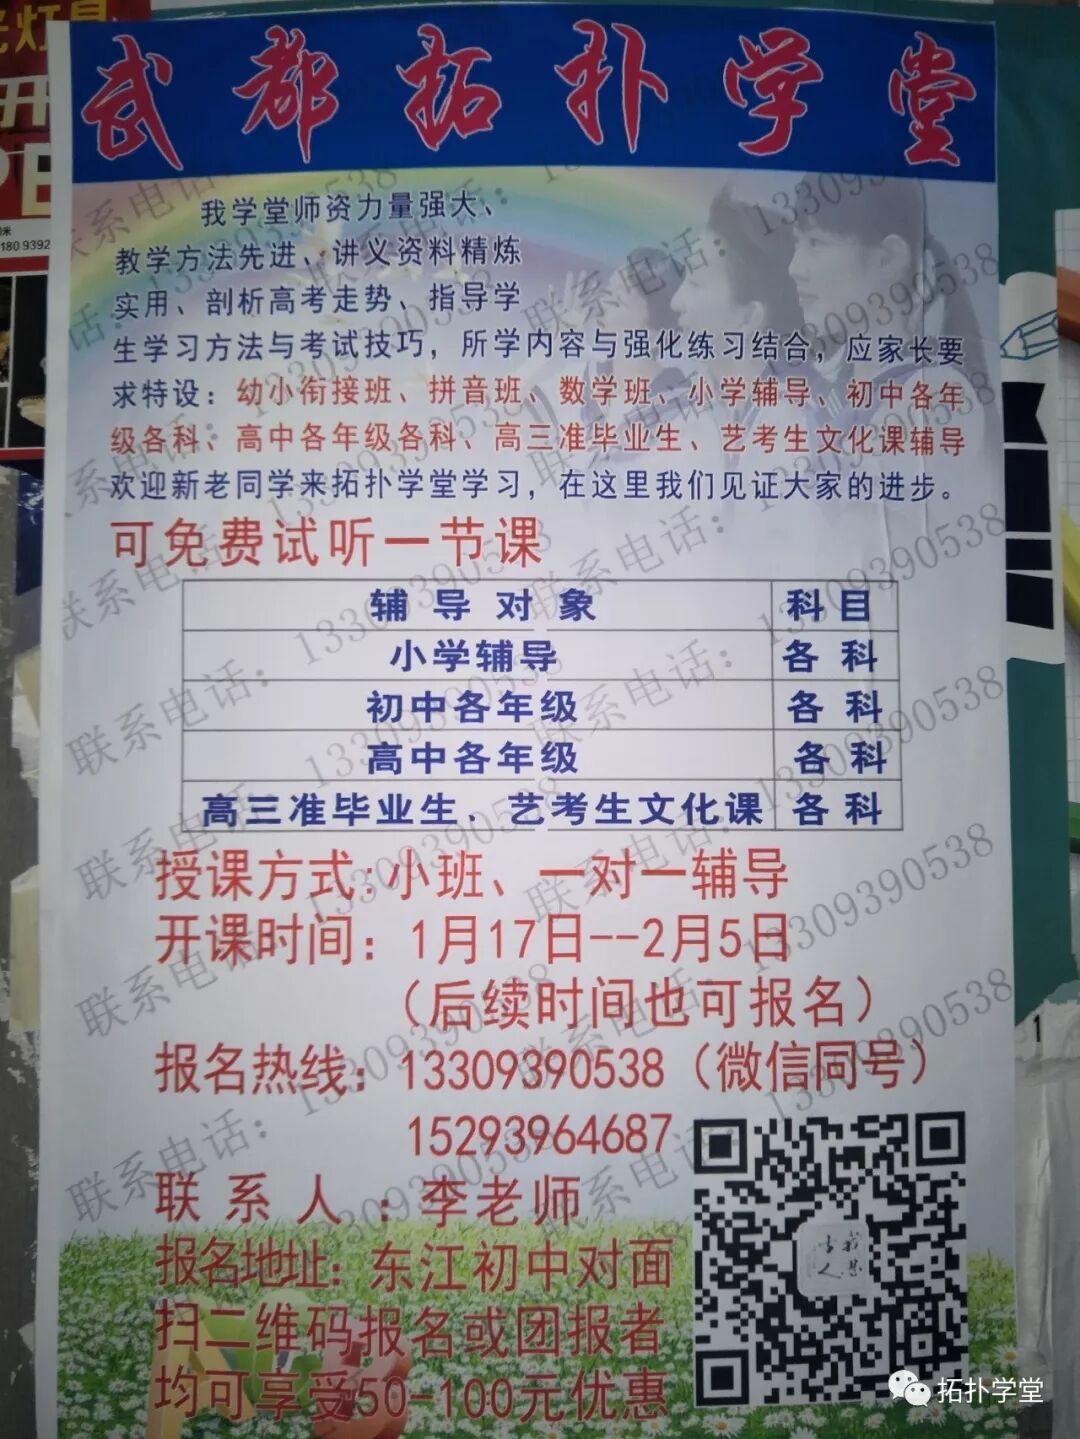 武都拓扑学堂
我学堂师资力量强大、
教学方法先进、讲义资料精炼
实用、剖析高考走势、指导学
生学习方法与考试技巧，所学内容与强化练习结合，应家长要
求特设：幼小衔接班、拼音班、数学班、小学辅导、初中各年
级各科、高中各年级各科、高三准毕业生、艺考生文化课辅导
欢迎新老同学来拓扑学堂学习，在这里我们见证大家的进步。
可免费试听一节课
辅导对象 科目
小学辅导 各科
初中各年级 各科
高中各年级 各科
高三准毕业生、艺考生文化课 各科
授课方式：小班、一对一辅导
开课时间：1月17日--2月5日
（后续时间也可报名）
报名热线：13309390538（微信同号）
15293964687
联系人：李老师
报名地址：东江初中对面
扫二维码报名或团报者
均可享受50-100元优惠
联系电话：13309390538
拓扑学堂